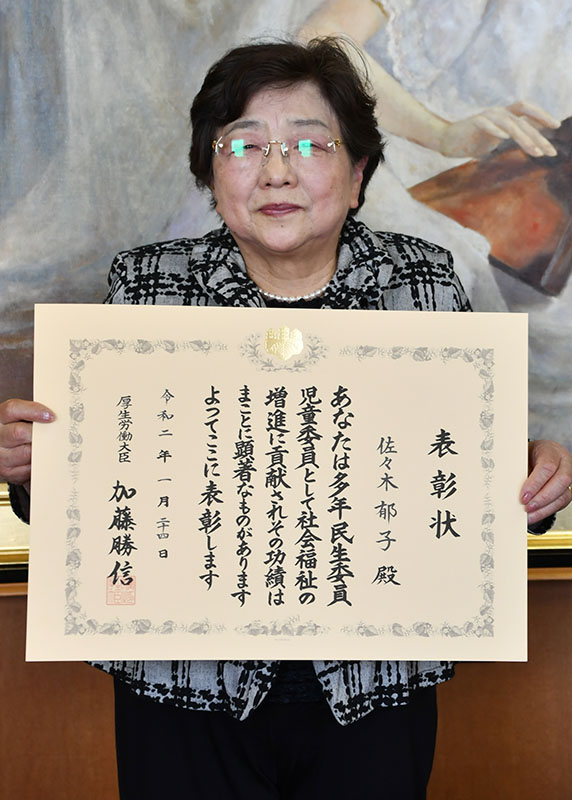 表彰状
佐々木郁子 殿
あなたは多年民生委員
児童委員として社会福祉の
増進に貢献されその功績は
まことに顕著なものがあります
よってここに表彰します
令和二年一月二十四日
厚生労働大臣 加藤勝信